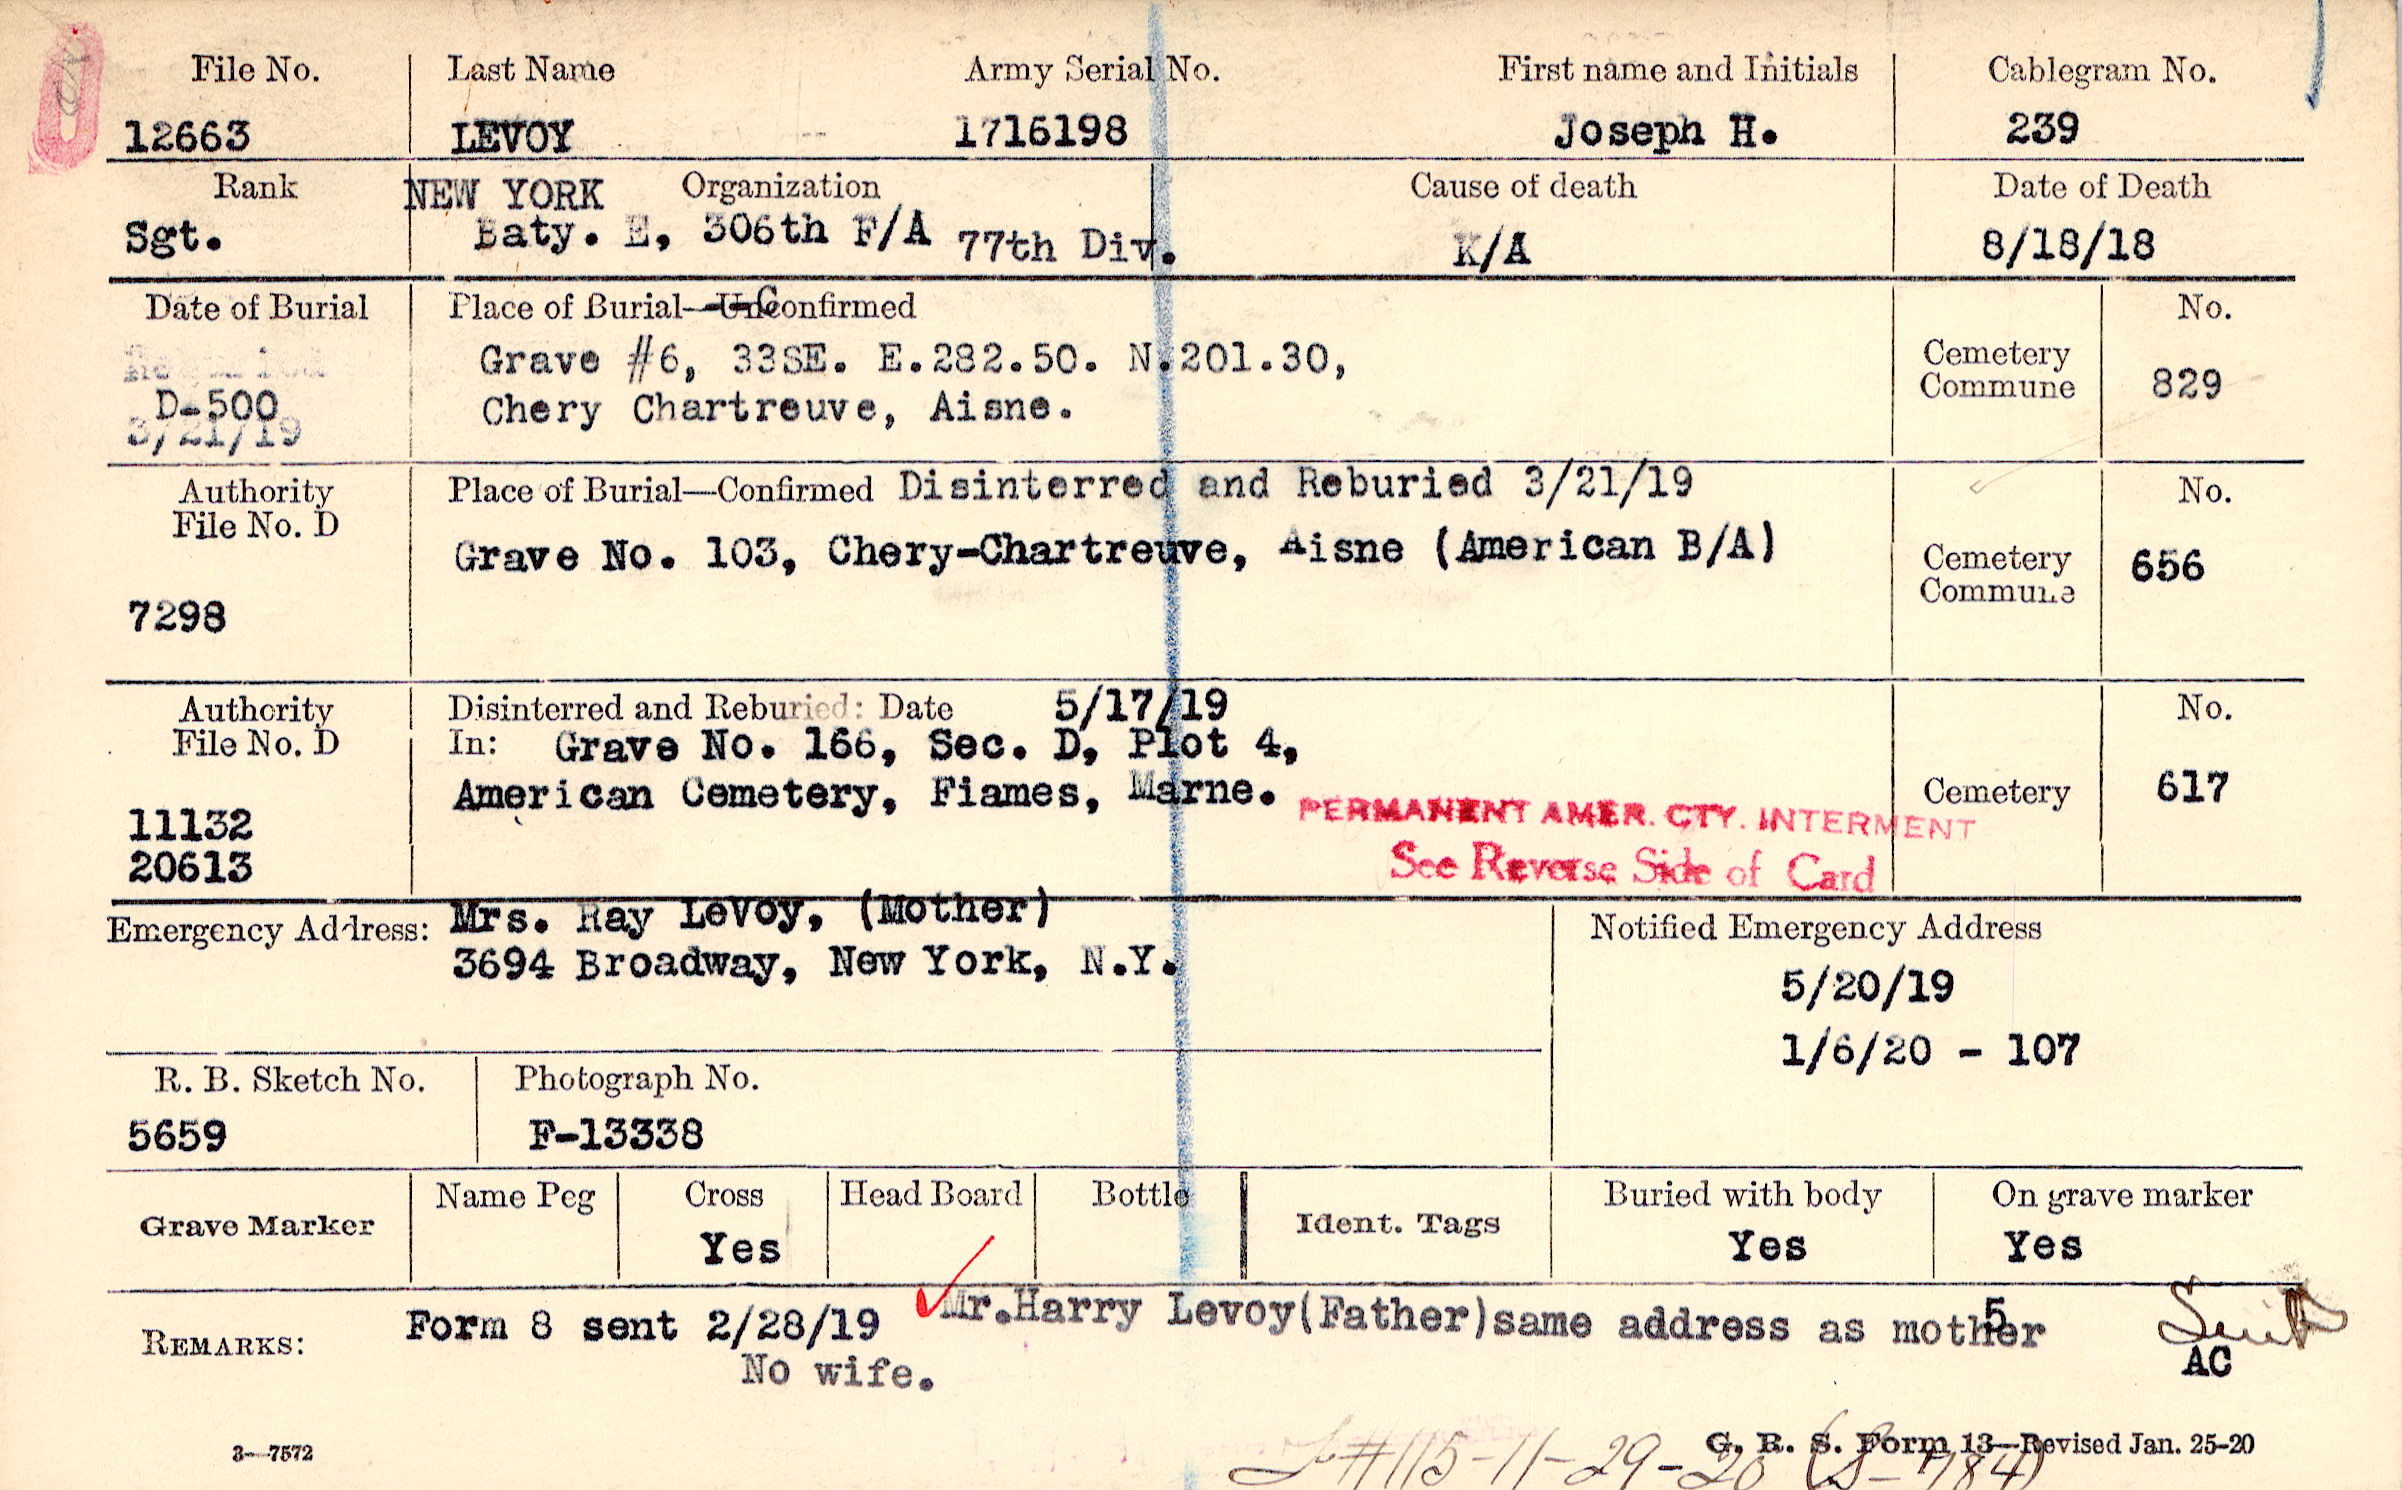 File No. Last Name Army Serial No. First name and Initials Cablegram No.
12663 LEVOY 1716198 Joseph H. 239
Rank NEW YORK Organization Cause of death Date of Death
Sgt. Baty. E, 306th F/A 77th Div. K/A 8/18/18
Date of Burial Place of Burial—UnConfirmed No.
Grave #6, 33SE. E.282.50. N.201.30, Cemetery
D-500 Chery Chartreuve, Aisne. Commune 829
3/21/19
Authority Place of Burial—Confirmed Disinterred and Reburied 3/21/19 No.
File No. D
Grave No. 103, Chery-Chartreuve, Aisne (American B/A) Cemetery 656
Commune
7298
Authority Disinterred and Reburied: Date 5/17/19 No.
File No. D In: Grave No. 166, Sec. D, Plot 4,
American Cemetery, Fiames, Marne. Cemetery 617
PERMANENT AMER. CTY. INTERMENT
11132
20613 See Reverse Side of Card
Emergency Address: Mrs. Ray LeVoy, (Mother) Notified Emergency Address
3694 Broadway, New York, N.Y.
5/20/19
1/6/20 - 107
R. B. Sketch No. Photograph No.
5659 F-13338
Grave Marker Name Peg Cross Head Board Bottle Ident. Tags Buried with body On grave marker
Yes Yes Yes
REMARKS: Form 8 sent 2/28/19 Mr.Harry Levoy(Father)same address as mother 5
No wife. AC
3—7572 G. R. S. Form 13—Revised Jan. 25-20
#115-11-29-20 (S-784)